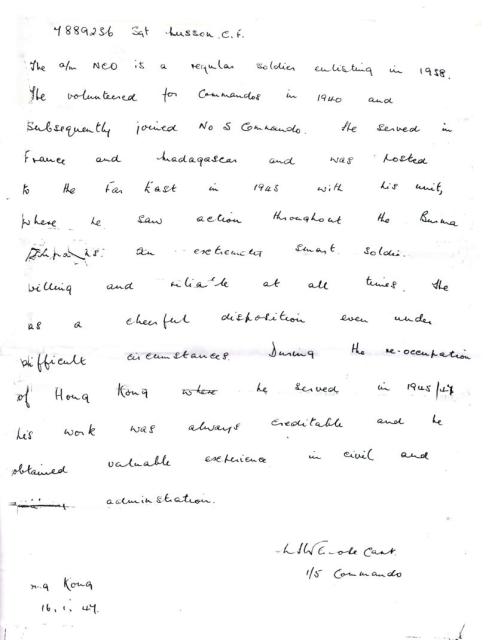 7889236 Sgt Lusson. C. F.
The a/m NCO is a regular soldier enlisting in 1938.
He volunteered for Commandos in 1940 and
subsequently joined No 5 Commando. He served in
France and Madagascar and was posted
to the Far East in 1943 with his unit,
where he saw action throughout the Burma
an extremely smart soldier.
willing and reliable at all times. He
as a cheerful disposition even under
difficult circumstances. During the re-occupation
of Hong Kong where he served in 1945/47
his work was always creditable and he
obtained valuable experience in civil and
administration.
Capt.
1/5 Commando
ng Kong
16. 1. 47.